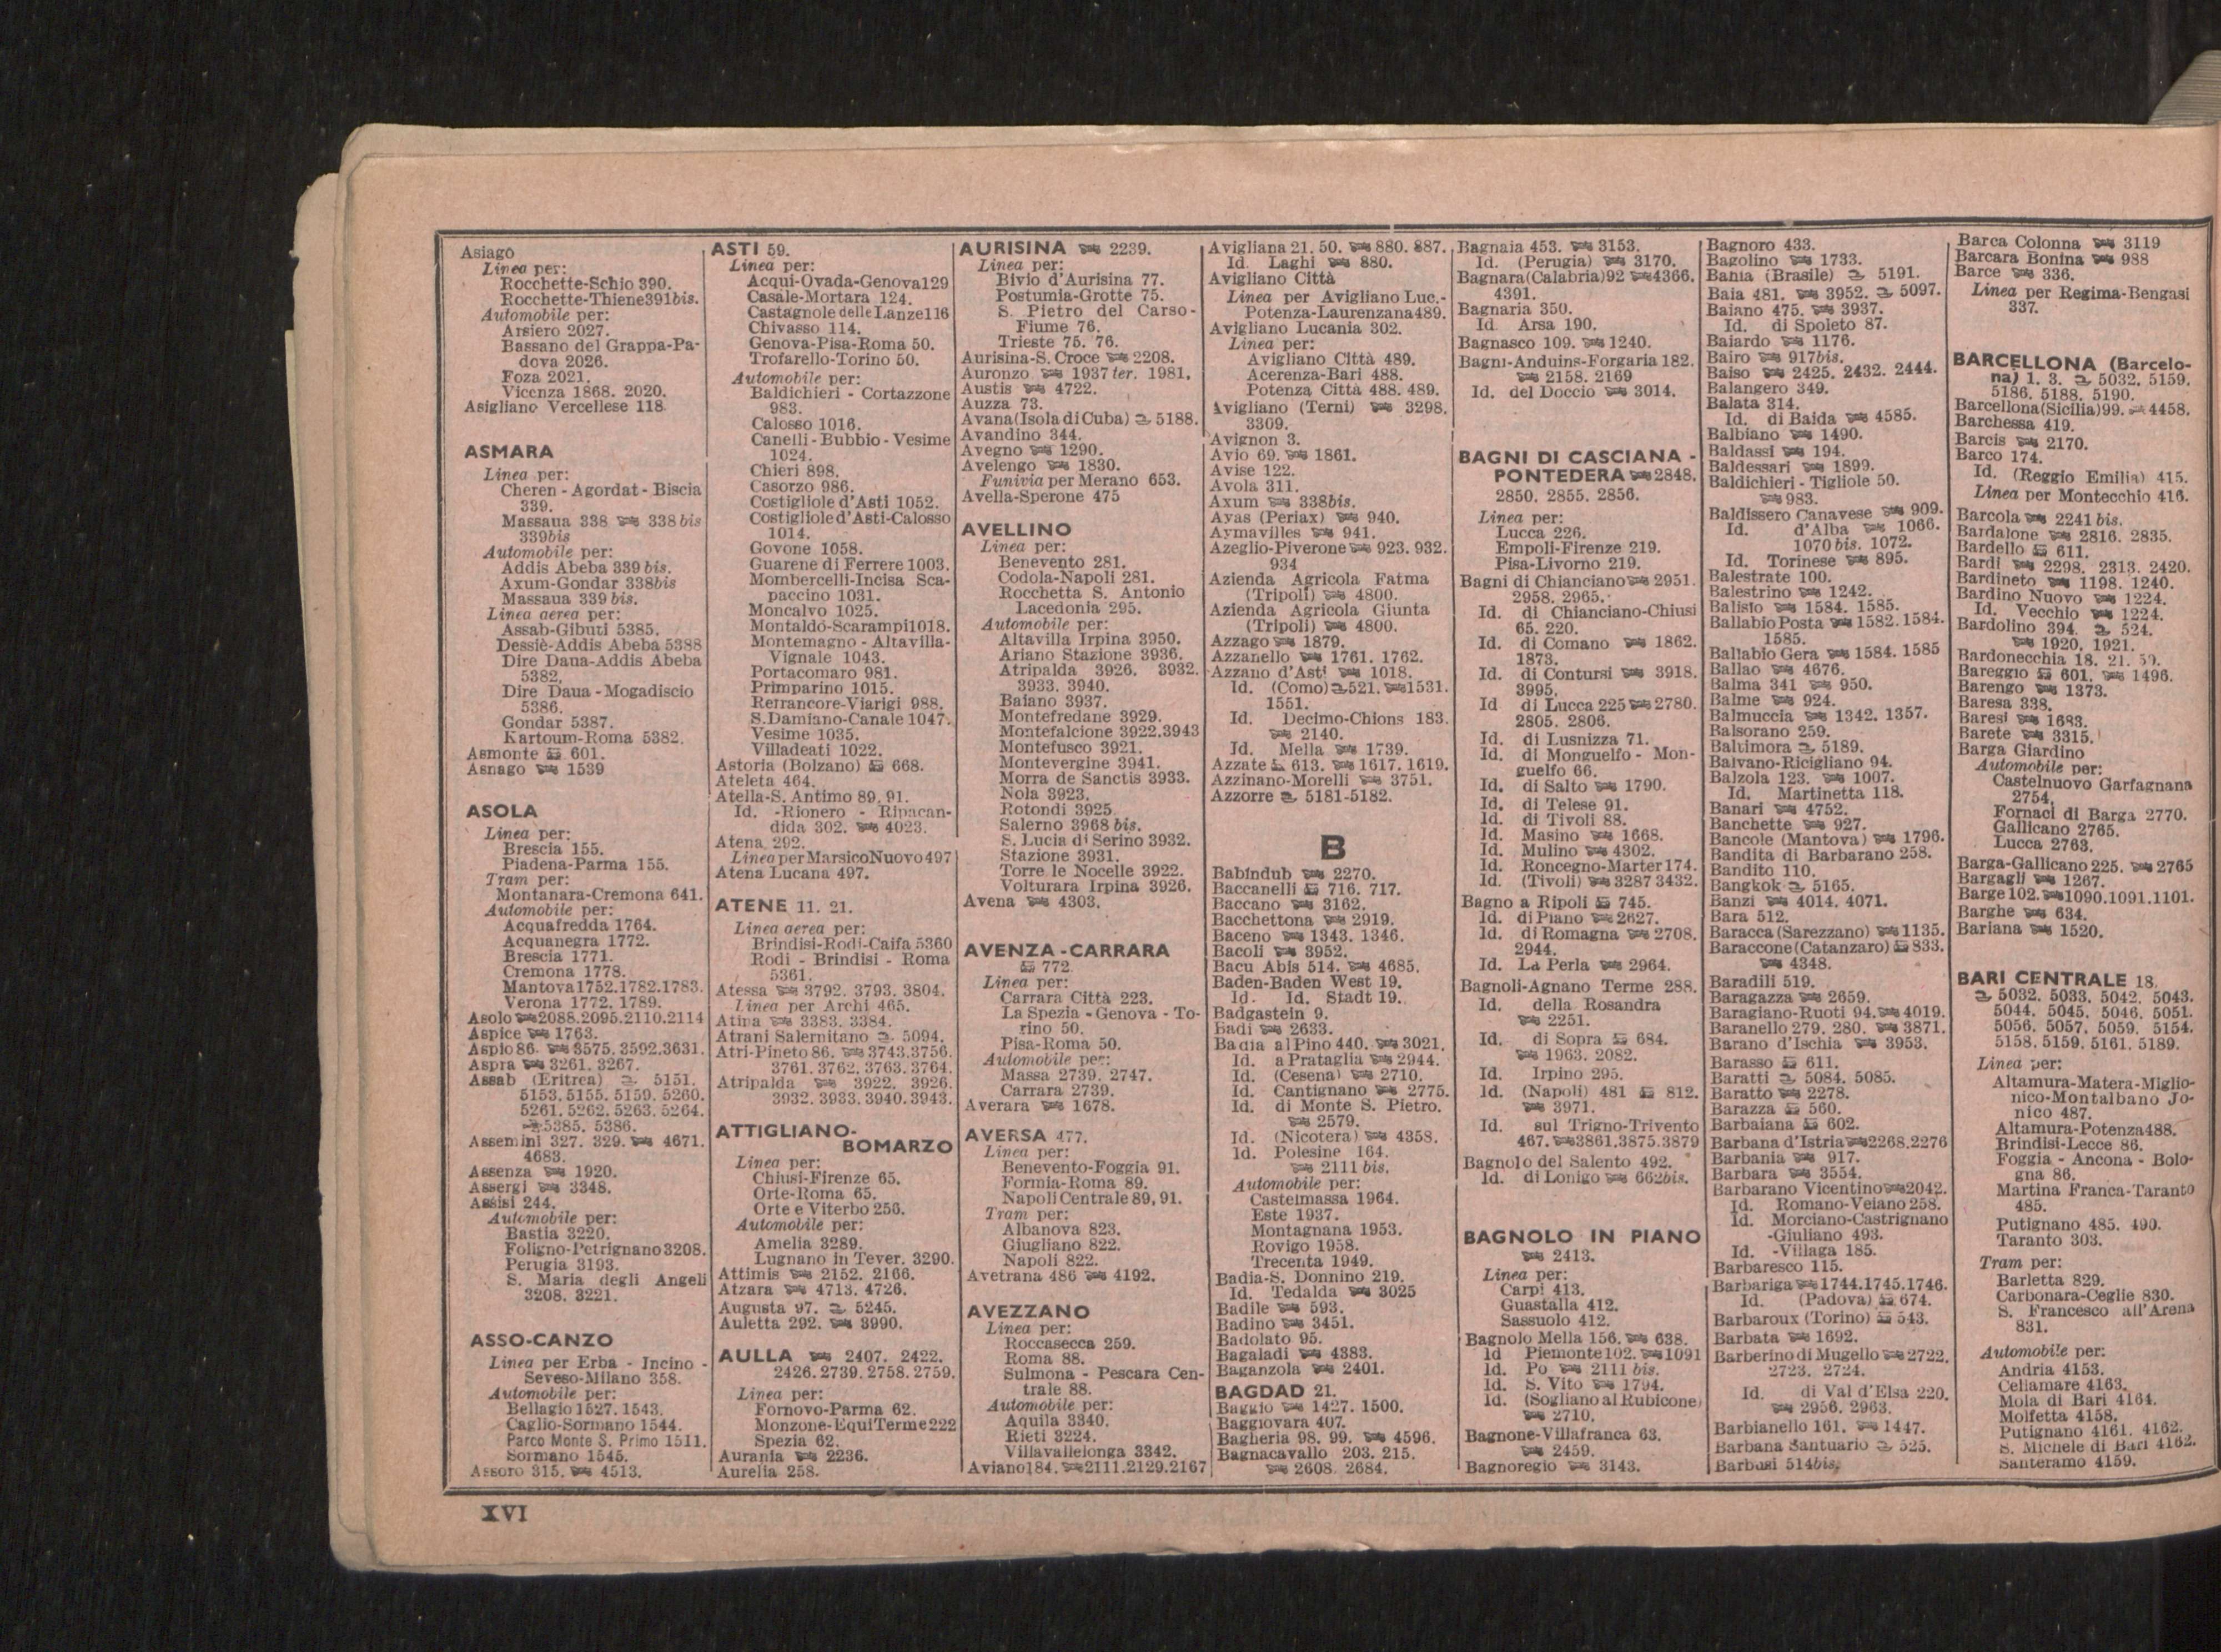 Asiago
Linea per:
Rocchette-Schio 390.
Rocchette-Thiene391bis.
Automobile per:
Arsiero 2027.
Bassano del Grappa-Pa-
dova 2026.
Foza 2021.
Vicenza 1868. 2020.
Asigliano Vercellese 118.
ASMARA
Linea per:
Cheren - Agordat - Biscia
339.
Massaua 338 338 bis
339bis
Automobile per:
Addis Abeba 339 bis.
Axum-Gondar 338bis
Massaua 339 bis.
Linea aerea per:
Assab-Gibuti 5385.
Dessiè-Addis Abeba 5388
Dire Daua-Addis Abeba
5382.
Dire Daua - Mogadiscio
5386.
Gondar 5387.
Kartoum-Roma 5382.
Asmonte 601.
Asnago 1539
ASOLA
Linea per:
Brescia 155.
Piadena-Parma 155.
Tram per:
Montanara-Cremona 641.
Automobile per:
Acquafredda 1764.
Acquanegra 1772.
Brescia 1771.
Cremona 1778.
Mantova1752.1782.1783.
Verona 1772. 1789.
Asolo 2088.2095.2110.2114
Aspice 1763.
Aspio 86. 3575. 3592.3631.
Aspra 3261. 3267.
Assab (Eritrea) 5151.
5153. 5155. 5159. 5260.
5261. 5262. 5263. 5264.
5385. 5386.
Assemini 327. 329. 4671.
4683.
Assenza 1920.
Assergi 3348.
Assisi 244.
Automobile per:
Bastia 3220.
Foligno-Petrignano 3208.
Perugia 3193.
S. Maria degli Angeli
3208. 3221.
ASSO-CANZO
Linea per Erba - Incino -
Seveso-Milano 358.
Automobile per:
Bellagio 1527. 1543.
Caglio-Sormano 1544.
Parco Monte S. Primo 1511.
Sormano 1545.
Assoro 315. 4513.
ASTI 59.
Linea per:
Acqui-Ovada-Genova129
Casale-Mortara 124.
Castagnole delle Lanze116
Chivasso 114.
Genova-Pisa-Roma 50.
Trofarello-Torino 50.
Automobile per:
Baldichieri - Cortazzone
983.
Calosso 1016.
Canelli - Bubbio - Vesime
1024.
Chieri 898.
Casorzo 986.
Costigliole d'Asti 1052.
Costigliole d'Asti-Calosso
1014.
Govone 1058.
Guarene di Ferrere 1003.
Mombercelli-Incisa Sca-
paccino 1031.
Moncalvo 1025.
Montaldo-Scarampi1018.
Montemagno - Altavilla-
Vignale 1043.
Portacomaro 981.
Primparino 1015.
Refrancore-Viarigi 988.
S.Damiano-Canale 1047.
Vesime 1035.
Villadeati 1022.
Astoria (Bolzano) 668.
Ateleta 464.
Atella-S. Antimo 89. 91.
Id. -Rionero - Ripacan-
dida 302. 4023.
Atena 292.
Linea per MarsicoNuovo497
Atena Lucana 497.
ATENE 11. 21.
Linea aerea per:
Brindisi-Rodi-Caifa 5360
Rodi - Brindisi - Roma
5361.
Atessa 3792. 3793. 3804.
Linea per Archi 465.
Atina 3383. 3384.
Atrani Salernitano 5094.
Atri-Pineto 86. 3743.3756.
3761. 3762. 3763. 3764.
Atripalda 3922. 3926.
3932. 3933. 3940. 3943.
ATTIGLIANO-
BOMARZO
Linea per:
Chiusi-Firenze 65.
Orte-Roma 65.
Orte e Viterbo 256.
Automobile per:
Amelia 3289.
Lugnano in Tever. 3290.
Attimis 2152. 2166.
Atzara 4713. 4726.
Augusta 97. 5245.
Auletta 292. 3990.
AULLA 2407. 2422.
2426. 2739. 2758. 2759.
Linea per:
Fornovo-Parma 62.
Monzone-EquiTerme222
Spezia 62.
Aurania 2236.
Aurelia 258.
AURISINA 2239.
Linea per:
Bivio d'Aurisina 77.
Postumia-Grotte 75.
S. Pietro del Carso-
Fiume 76.
Trieste 75. 76.
Aurisina-S. Croce 2208.
Auronzo 1937 ter. 1981.
Austis 4722.
Auzza 73.
Avana(Isola di Cuba) 5188.
Avandino 344.
Avegno 1290.
Avelengo 1830.
Funivia per Merano 653.
Avella-Sperone 475
AVELLINO
Linea per:
Benevento 281.
Codola-Napoli 281.
Rocchetta S. Antonio
Lacedonia 295.
Automobile per:
Altavilla Irpina 3950.
Ariano Stazione 3936.
Atripalda 3926. 3932.
3933. 3940.
Baiano 3937.
Montefredane 3929.
Montefalcione 3922.3943
Montefusco 3921.
Montevergine 3941.
Morra de Sanctis 3933.
Nola 3923.
Rotondi 3925.
Salerno 3968 bis.
S. Lucia di Serino 3932.
Stazione 3931.
Torre le Nocelle 3922.
Volturara Irpina 3926.
Avena 4303.
AVENZA - CARRARA
772
Linea per:
Carrara Città 223.
La Spezia - Genova - To-
rino 50.
Pisa-Roma 50.
Automobile per:
Massa 2739. 2747.
Carrara 2739.
Averara 1678.
AVERSA 477.
Linea per:
Benevento-Foggia 91.
Formia-Roma 89.
Napoli Centrale 89, 91.
Tram per:
Albanova 823.
Giugliano 822.
Napoli 822.
Avetrana 486 4192.
AVEZZANO
Linea per:
Roccasecca 259.
Roma 88.
Sulmona - Pescara Cen-
trale 88.
Automobile per:
Aquila 3340.
Rieti 3224.
Villavallelonga 3342.
Aviano184. 2111.2129.2167
Avigliana 21. 50. 880. 887.
Id. Laghi 880.
Avigliano Città
Linea per Avigliano Luc.-
Potenza-Laurenzana489.
Avigliano Lucania 302.
Linea per:
Avigliano Città 489.
Acerenza-Bari 488.
Potenza Città 488. 489.
Avigliano (Terni) 3298.
3309.
Avignon 3.
Avio 69. 1861.
Avise 122.
Avola 311.
Axum 338bis.
Ayas (Periax) 940.
Aymavilles 941.
Azeglio-Piverone 923. 932.
934
Azienda Agricola Fatma
(Tripoli) 4800.
Azienda Agricola Giunta
(Tripoli) 4800.
Azzago 1879.
Azzanello 1761. 1762.
Azzano d'Asti 1018.
Id. (Como) 521. 1531.
1551.
Id. Decimo-Chions 183.
2140.
Id. Mella 1739.
Azzate 613. 1617. 1619.
Azzinano-Morelli 3751.
Azzorre 5181-5182.
B
Babindub 2270.
Baccanelli 716. 717.
Baccano 3162.
Bacchettona 2919.
Baceno 1343. 1346.
Bacoli 3952.
Bacu Abis 514. 4685.
Baden-Baden West 19.
Id. Id. Stadt 19.
Badgastein 9.
Badi 2633.
Badia al Pino 440. 3021.
Id. a Prataglia 2944.
Id. (Cesena) 2710.
Id. Cantignano 2775.
Id. di Monte S. Pietro.
2579.
Id. (Nicotera) 4358.
Id. Polesine 164.
2111 bis.
Automobile per:
Castelmassa 1964.
Este 1937.
Montagnana 1953.
Rovigo 1958.
Trecenta 1949.
Badia-S. Donnino 219.
Id. Tedalda 3025
Badile 593.
Badino 3451.
Badolato 95.
Bagaladi 4383.
Baganzola 2401.
BAGDAD 21.
Baggio 1427. 1500.
Baggiovara 407.
Bagheria 98. 99. 4596.
Bagnacavallo 203. 215.
2608. 2684.
Bagnaia 453. 3153.
Id. (Perugia) 3170.
Bagnara(Calabria)92 4366.
4391.
Bagnaria 350.
Id. Arsa 190.
Bagnasco 109. 1240.
Bagni-Anduins-Forgaria 182.
2158. 2169
Id. del Doccio 3014.
BAGNI DI CASCIANA -
PONTEDERA 2848.
2850. 2855. 2856.
Linea per:
Lucca 226.
Empoli-Firenze 219.
Pisa-Livorno 219.
Bagni di Chianciano 2951.
2958. 2965.
Id. di Chianciano-Chiusi
65. 220.
Id. di Comano 1862.
1873.
Id. di Contursi 3918.
3995.
Id di Lucca 225 2780.
2805. 2806.
Id. di Lusnizza 71.
Id. di Monguelfo - Mon-
guelfo 66.
Id. di Salto 1790.
Id. di Telese 91.
Id. di Tivoli 88.
Id. Masino 1668.
Id. Mulino 4302.
Id. Roncegno-Marter 174.
Id. (Tivoli) 3287 3432.
Bagno a Ripoli 745.
Id. di Piano 2627.
Id. di Romagna 2708.
2944.
Id. La Perla 2964.
Bagnoli-Agnano Terme 288.
Id. della Rosandra
2251.
Id. di Sopra 684.
1963. 2082.
Id. Irpino 295.
Id. (Napoli) 481 812.
3971.
Id. sul Trigno-Trivento
467. 3861.3875.3879
Bagnolo del Salento 492.
Id. di Lonigo 662bis.
BAGNOLO IN PIANO
2413.
Linea per:
Carpi 413.
Guastalla 412.
Sassuolo 412.
Bagnolo Mella 156. 638.
Id Piemonte 102. 1091
Id. Po 2111 bis.
Id. S. Vito 1794.
Id. (Sogliano al Rubicone)
2710.
Bagnone-Villafranca 63.
2459.
Bagnoregio 3143.
Bagnoro 433.
Bagolino 1733.
Bahia (Brasile) 5191.
Baia 481. 3952. 5097.
Baiano 475. 3937.
Id. di Spoleto 87.
Baiardo 1176.
Bairo 917bis.
Baiso 2425. 2432. 2444.
Balangero 349.
Balata 314.
Id. di Baida 4585.
Balbiano 1490.
Baldassi 194.
Baldessari 1899.
Baldichieri - Tigliole 50.
983.
Baldissero Canavese 909.
Id. d'Alba 1066.
1070 bis. 1072.
Id. Torinese 895.
Balestrate 100.
Balestrino 1242.
Balisio 1584. 1585.
Ballabio Posta 1582. 1584.
1585.
Ballabio Gera 1584. 1585
Ballao 4676.
Balma 341 950.
Balme 924.
Balmuccia 1342. 1357.
Balsorano 259.
Baltimora 5189.
Balvano-Ricigliano 94.
Balzola 123. 1007.
Id. Martinetta 118.
Banari 4752.
Banchette 927.
Bancole (Mantova) 1796.
Bandita di Barbarano 258.
Bandito 110.
Bangkok 5165.
Banzi 4014. 4071.
Bara 512.
Baracca (Sarezzano) 1135.
Baraccone (Catanzaro) 833.
4348.
Baradili 519.
Baragazza 2659.
Baragiano-Ruoti 94. 4019.
Baranello 279. 280. 3871.
Barano d'Ischia 3953.
Barasso 611.
Baratti 5084. 5085.
Baratto 2278.
Barazza 560.
Barbaiana 602.
Barbana d'Istria 2268.2276
Barbania 917.
Barbara 3554.
Barbarano Vicentino 2042.
Id. Romano-Veiano 258.
Id. Morciano-Castrignano
-Giuliano 493.
Id. -Villaga 185.
Barbaresco 115.
Barbariga 1744.1745.1746.
Id. (Padova) 674.
Barbaroux (Torino) 543.
Barbata 1692.
Barberino di Mugello 2722.
2723. 2724.
Id. di Val d'Elsa 220.
2956. 2963.
Barbianello 161. 1447.
Barbana Santuario 525.
Barbusi 514bis.
Barca Colonna 3119
Barcara Bonina 988
Barce 336.
Linea per Regima-Bengasi
337.
BARCELLONA (Barcelo-
na) 1. 3. 5032. 5159.
5186. 5188. 5190.
Barcellona(Sicilia)99. 4458.
Barchessa 419.
Barcis 2170.
Barco 174.
Id. (Reggio Emilia) 415.
Linea per Montecchio 416.
Barcola 2241 bis.
Bardalone 2816. 2835.
Bardello 611.
Bardi 2298. 2313. 2420.
Bardineto 1198. 1240.
Bardino Nuovo 1224.
Id. Vecchio 1224.
Bardolino 394. 524.
1920. 1921.
Bardonecchia 18. 21. 59.
Bareggio 601. 1496.
Barengo 1373.
Baresa 338.
Baresi 1683.
Barete 3315.
Barga Giardino
Automobile per:
Castelnuovo Garfagnana
2754.
Fornaci di Barga 2770.
Gallicano 2765.
Lucca 2763.
Barga-Gallicano 225. 2765
Bargagli 1267.
Barge 102. 1090.1091.1101.
Barghe 634.
Bariana 1520.
BARI CENTRALE 18.
5032. 5033. 5042. 5043.
5044. 5045. 5046. 5051.
5056. 5057. 5059. 5154.
5158. 5159. 5161. 5189.
Linea per:
Altamura-Matera-Miglio-
nico-Montalbano Jo-
nico 487.
Altamura-Potenza488.
Brindisi-Lecce 86.
Foggia - Ancona - Bolo-
gna 86.
Martina Franca-Taranto
485.
Putignano 485. 490.
Taranto 303.
Tram per:
Barletta 829.
Carbonara-Ceglie 830.
S. Francesco all'Arena
831.
Automobile per:
Andria 4153.
Cellamare 4163.
Mola di Bari 4164.
Molfetta 4158.
Putignano 4161. 4162.
S. Michele di Bari 4162.
Santeramo 4159.
XVI